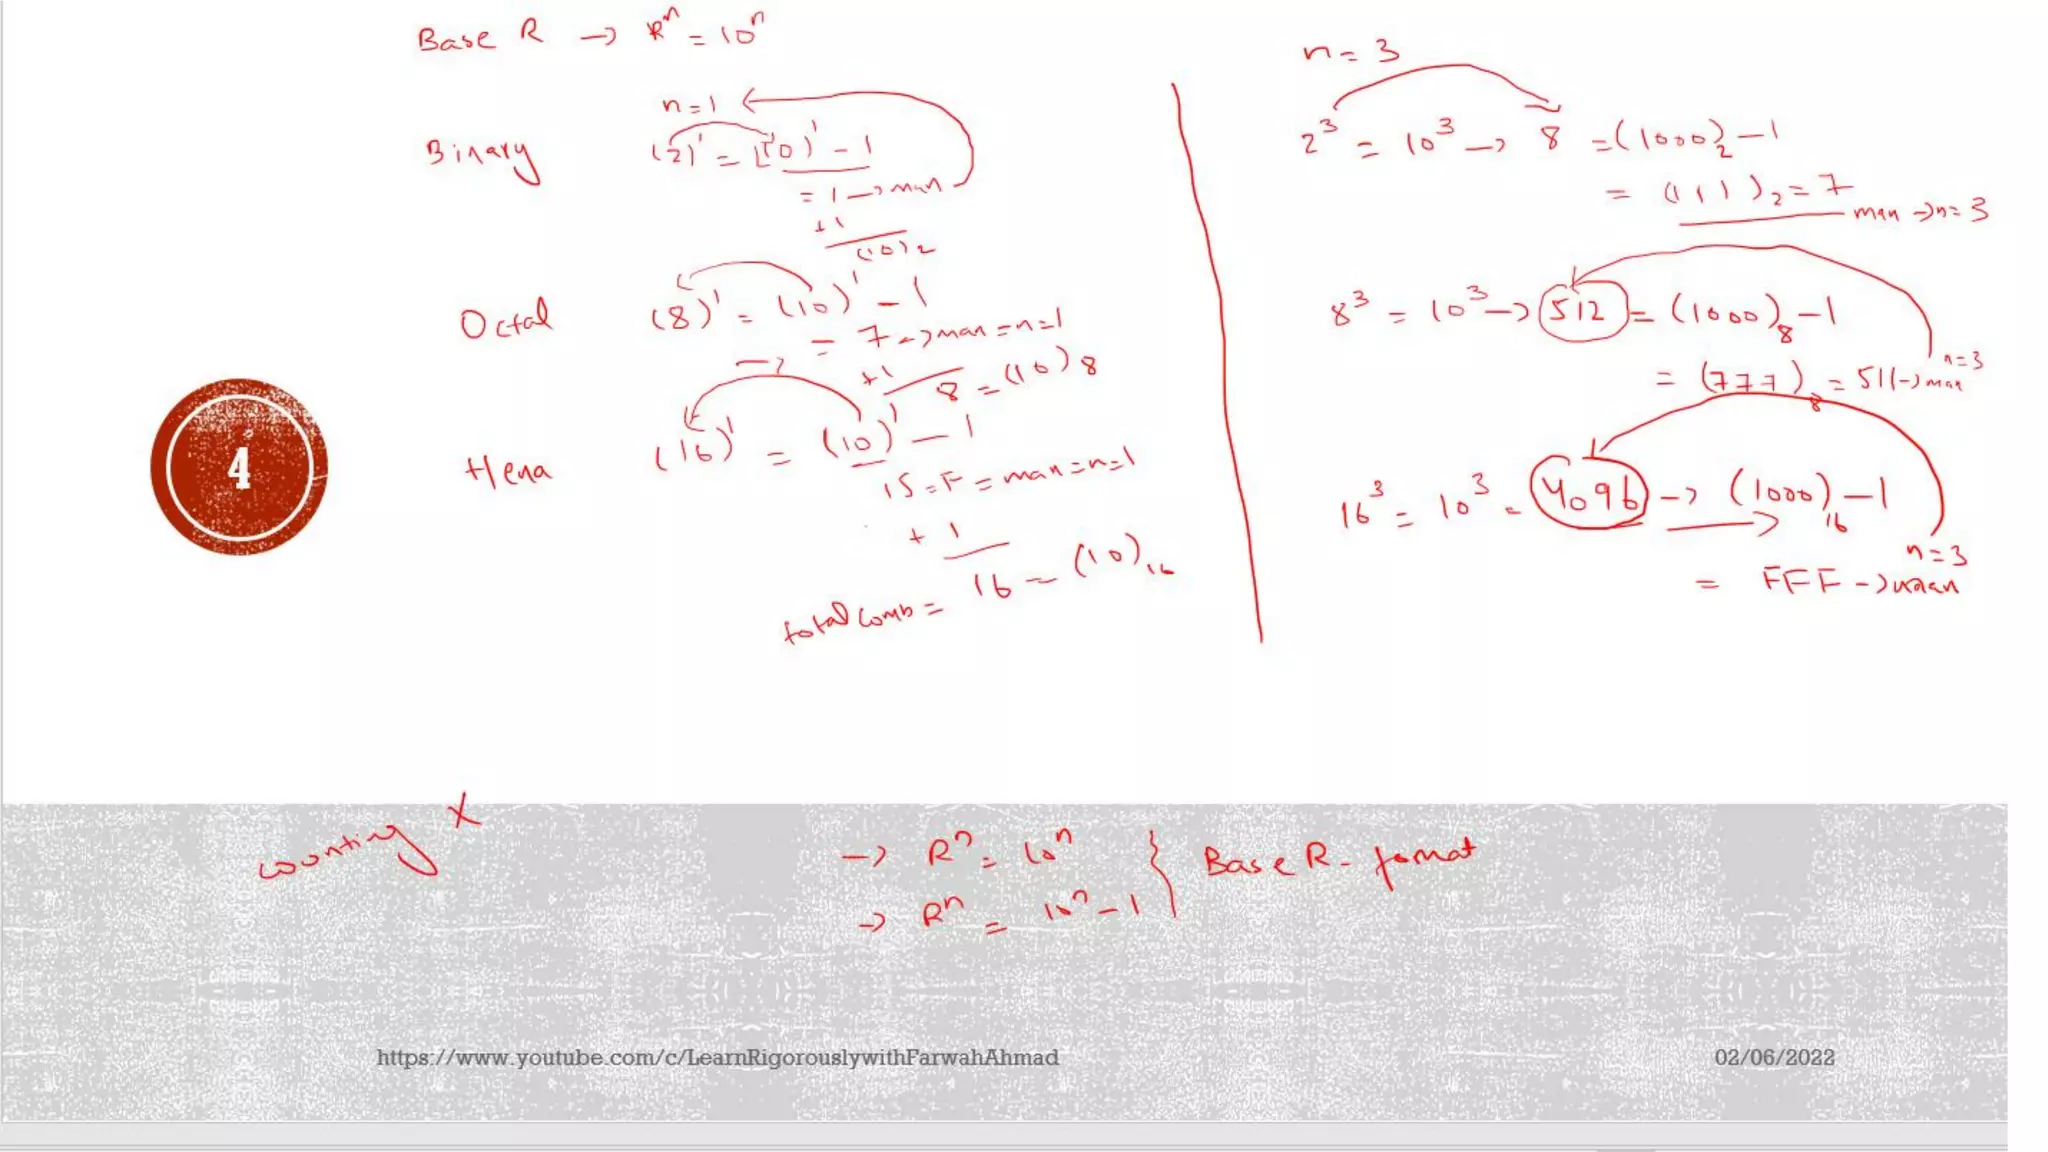 Base R → Rⁿ = 10ⁿ
n=1
Binary (2)¹ = (10)¹ - 1
= 1 → max
+1
(10)₂
Octal (8)¹ = (10)¹ - 1
= 7 → max = n=1
+1
8 = (10)8
Hexa (16)¹ = (10)¹ - 1
15 = F = max = n=1
+ 1
total comb = 16 = (10)₁₆
n = 3
2³ = 10³ → 8 = (1000)₂ - 1
= (111)₂ = 7
max → n=3
8³ = 10³ → 512 = (1000)₈ - 1
n=3
= (777)₈ = 511 → max
16³ = 10³ = 4096 → (1000)₁₆ - 1
n=3
= FFF → max
4
counting X
→ Rⁿ = 10ⁿ
→ Rⁿ = 10ⁿ - 1
} Base R - format
https://www.youtube.com/c/LearnRigorouslywithFarwahAhmad
02/06/2022